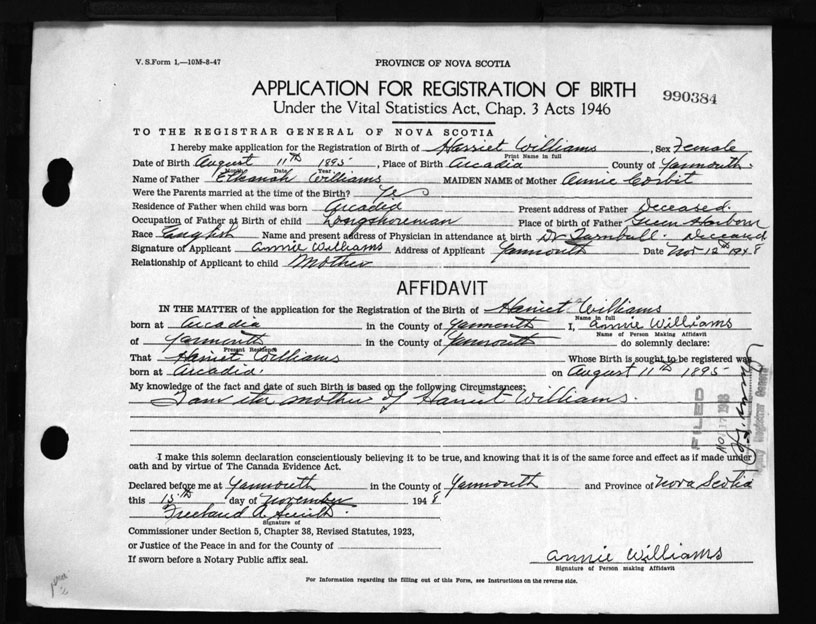 V. S. Form 1.—10M-8-47
PROVINCE OF NOVA SCOTIA
APPLICATION FOR REGISTRATION OF BIRTH
990384
Under the Vital Statistics Act, Chap. 3 Acts 1946
TO THE REGISTRAR GENERAL OF NOVA SCOTIA
I hereby make application for the Registration of Birth of Harriet Williams, Sex Female
Print Name in full
Date of Birth August 11th 1895, Place of Birth Arcadia County of Yarmouth.
Month Date Year
Name of Father Elkanah Williams MAIDEN NAME of Mother Annie Corbit
Were the Parents married at the time of the Birth? Yes
Residence of Father when child was born Arcadia Present address of Father Deceased.
Occupation of Father at Birth of child Longshoreman Place of birth of Father Green Harbour
Race English Name and present address of Physician in attendance at birth Dr Turnbull. Deceased
Signature of Applicant Annie Williams Address of Applicant Yarmouth Date Nov 1948
Relationship of Applicant to child Mother
AFFIDAVIT
IN THE MATTER of the application for the Registration of the Birth of Harriet Williams
Name in full
born at Arcadia in the County of Yarmouth I, Annie Williams
Name of Person Making Affidavit
of Yarmouth in the County of Yarmouth do solemnly declare:
Present Residence
That Harriet Williams Whose Birth is sought to be registered was
born at Arcadia. on August 11th 1895
My knowledge of the fact and date of such Birth is based on the following Circumstances:
I am the mother of Harriet Williams.
FILED
NOV 17 1948
I make this solemn declaration conscientiously believing it to be true, and knowing that it is of the same force and effect as if made under
oath and by virtue of The Canada Evidence Act.
Declared before me at Yarmouth in the County of Yarmouth and Province of Nova Scotia
this 15th day of November 1948
Freeland A. Smith.
Signature of
Commissioner under Section 5, Chapter 38, Revised Statutes, 1923,
or Justice of the Peace in and for the County of
If sworn before a Notary Public affix seal.
Annie Williams
Signature of Person making Affidavit
For Information regarding the filling out of this Form, see Instructions on the reverse side.